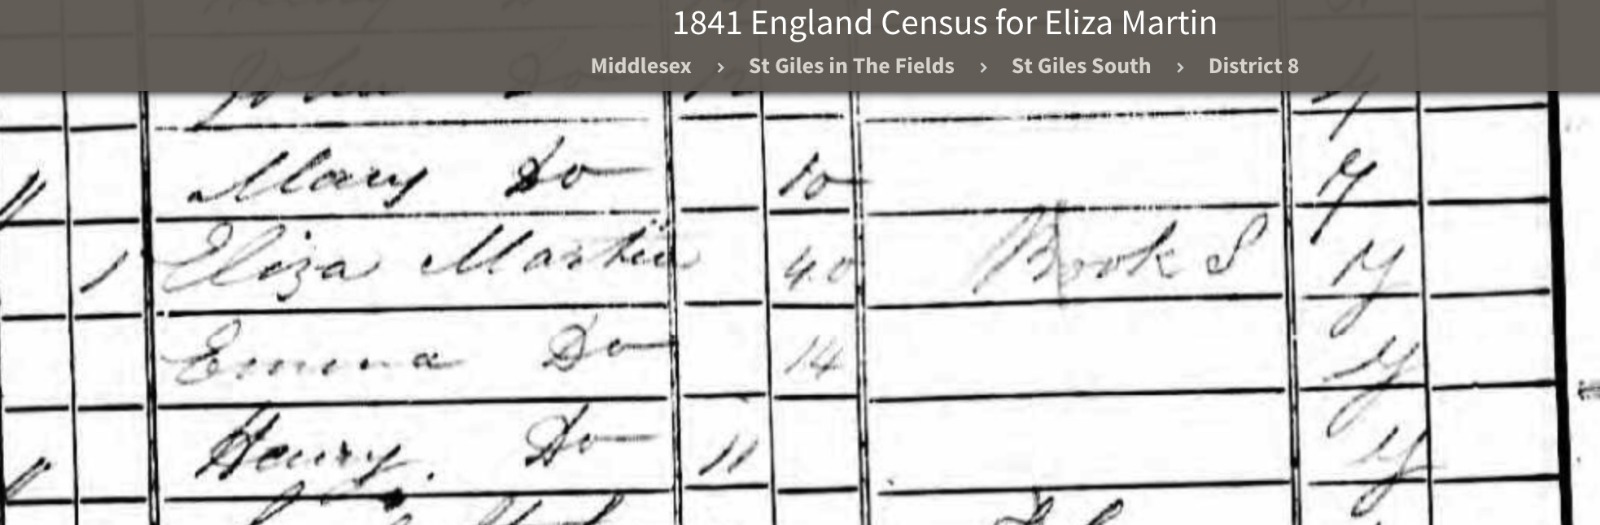 1841 England Census for Eliza Martin
Middlesex › St Giles in The Fields › St Giles South › District 8
John Do
Mary Do 10 y
1 Eliza Martin 40 Book S y
Emma Do 14 y
Henry Do 11 y